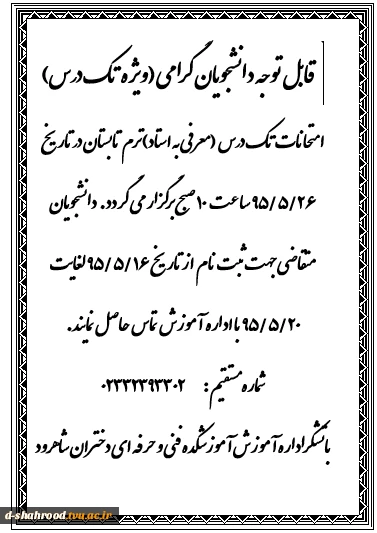 قابل توجه دانشجویان گرامی (ویژه تک درس)
امتحانات تک درس (معرفی به استاد) ترم تابستان در تاریخ
۹۵/۵/۲۶ ساعت ۱۰ صبح برگزار می گردد. دانشجویان
متقاضی جهت ثبت نام از تاریخ ۹۵/۵/۱۶ لغایت
۹۵/۵/۲۰ با اداره آموزش تماس حاصل نمایند.
شماره مستقیم: ۰۲۳۳۲۳۹۳۳۰۲
باتشکر اداره آموزش آموزشکده فنی و حرفه ای دختران شاهرود
d-shahrood.tvu.ac.ir